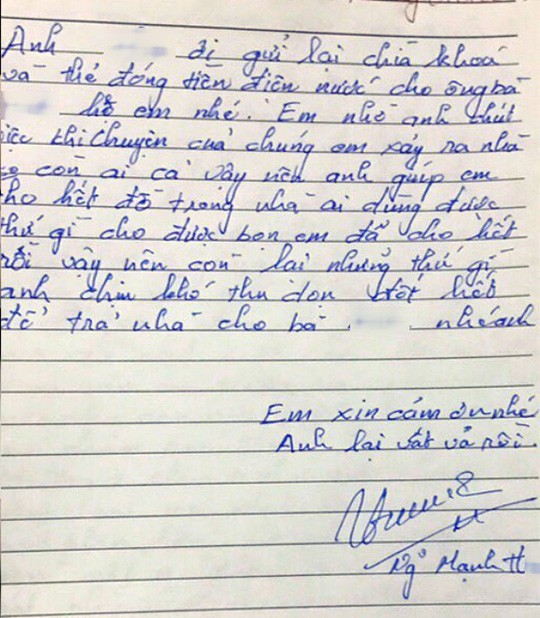 Anh đi gửi lại chìa khoá
và thẻ đóng tiền điện nước cho ông bà
hộ em nhé. Em nhờ anh chút
việc thì chuyện của chúng em xảy ra nhà
còn ai cả vậy nên anh giúp em
cho hết đồ trong nhà ai dùng được
thứ gì cho được bọn em đã cho hết
rồi vậy nên còn lại những thứ gì
anh chịu khó thu dọn đốt hết
để trả nhà cho bà . nhé anh
Em xin cảm ơn nhé
Anh lại vất vả rồi.
Ng Mạnh H